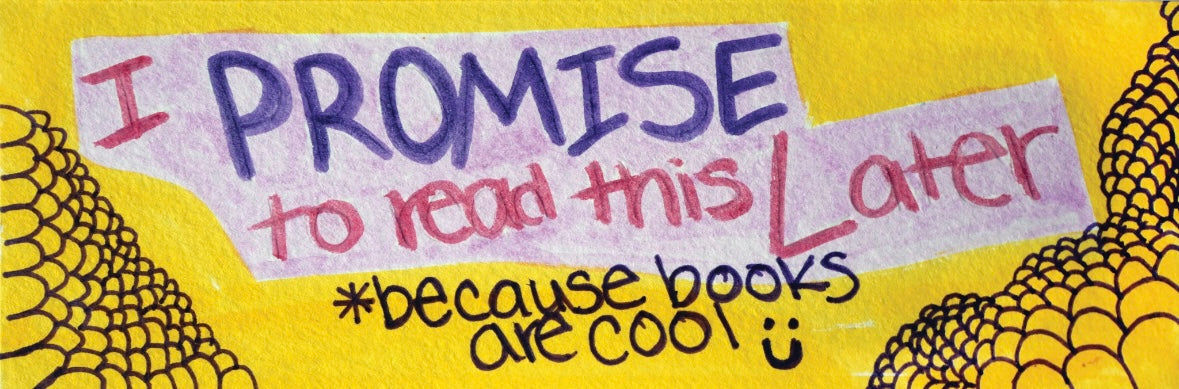 I PROMISE
to read this Later
*because books
are cool